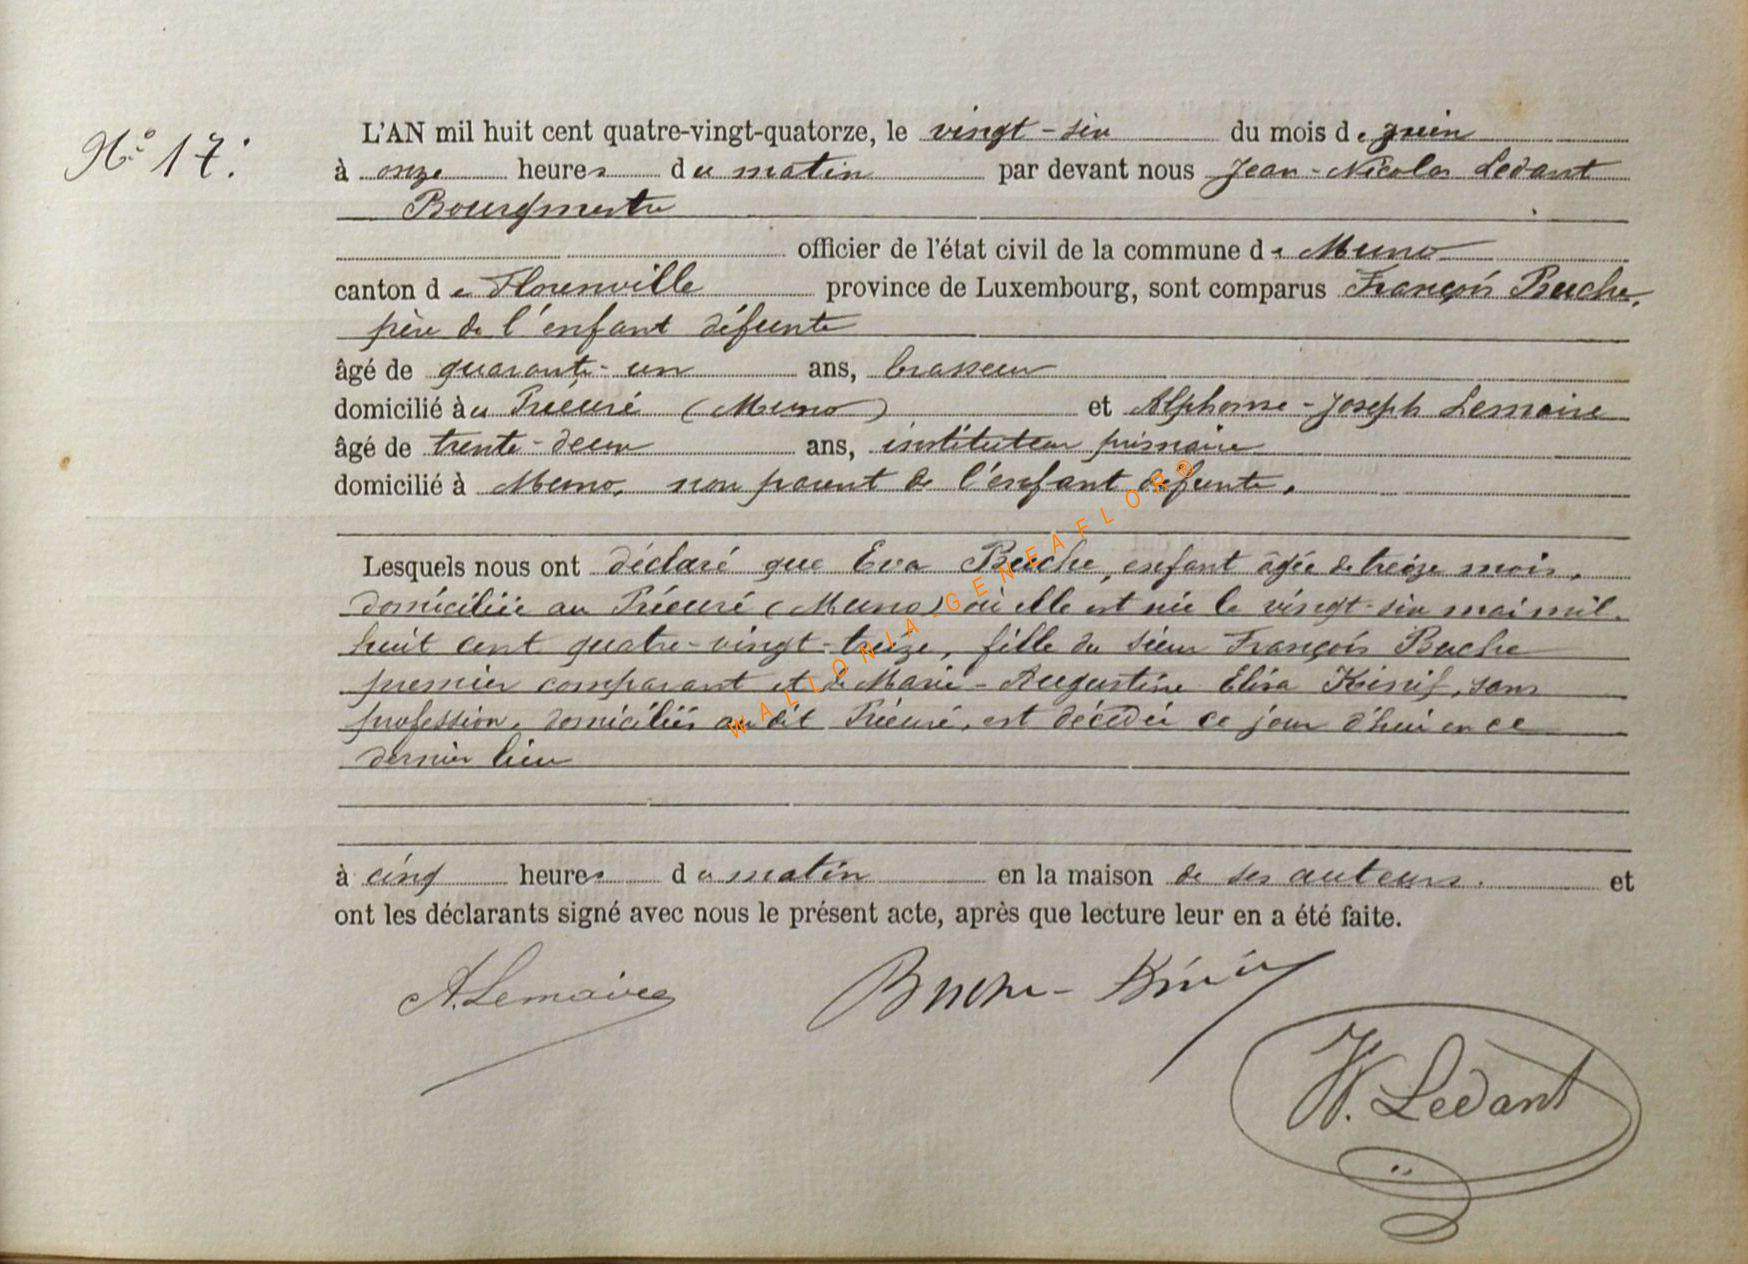 N° 17.
L'AN mil huit cent quatre-vingt-quatorze, le vingt-six du mois de juin
à onze heures du matin par devant nous Jean-Nicolas Ledant
Bourgmestre
officier de l'état civil de la commune de Muno
canton de Florenville province de Luxembourg, sont comparus François Buche,
père de l'enfant défunte
âgé de quarante-un ans, brasseur
domicilié au Prieuré (Muno) et Alphonse-Joseph Lemaire
âgé de trente-deux ans, instituteur primaire
domicilié à Muno, non parent de l'enfant défunte.
Lesquels nous ont déclaré que Eva Buche, enfant âgée de treize mois,
domiciliée au Prieuré (Muno) où elle est née le vingt-six mai mil
huit cent quatre-vingt-treize, fille du sieur François Buche
premier comparant et de Marie-Augustine Elisa Kinif, sans
profession, domiciliés au dit Prieuré, est décédée ce jour d'hui en ce
dernier lieu
à cinq heures du matin en la maison de ses auteurs. et
ont les déclarants signé avec nous le présent acte, après que lecture leur en a été faite.
A. Lemaire Buche-
N. Ledant
WALLONIA-GENEAFLOR®